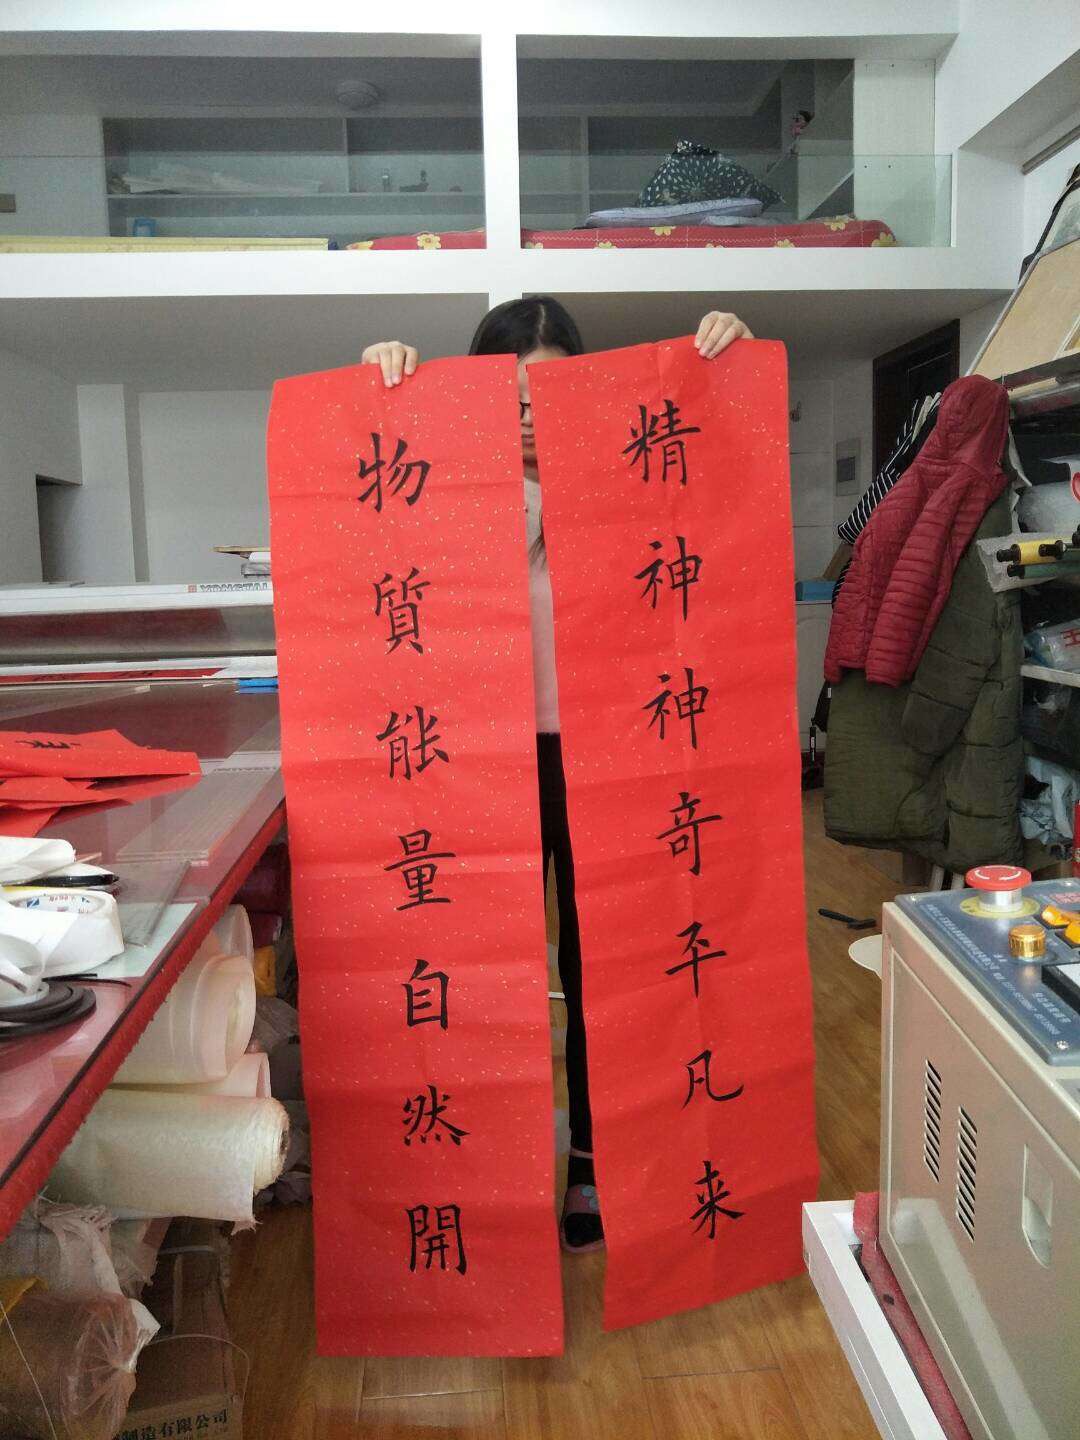 精神神奇平凡来
物質能量自然開
YONGTAI
制造有限公司